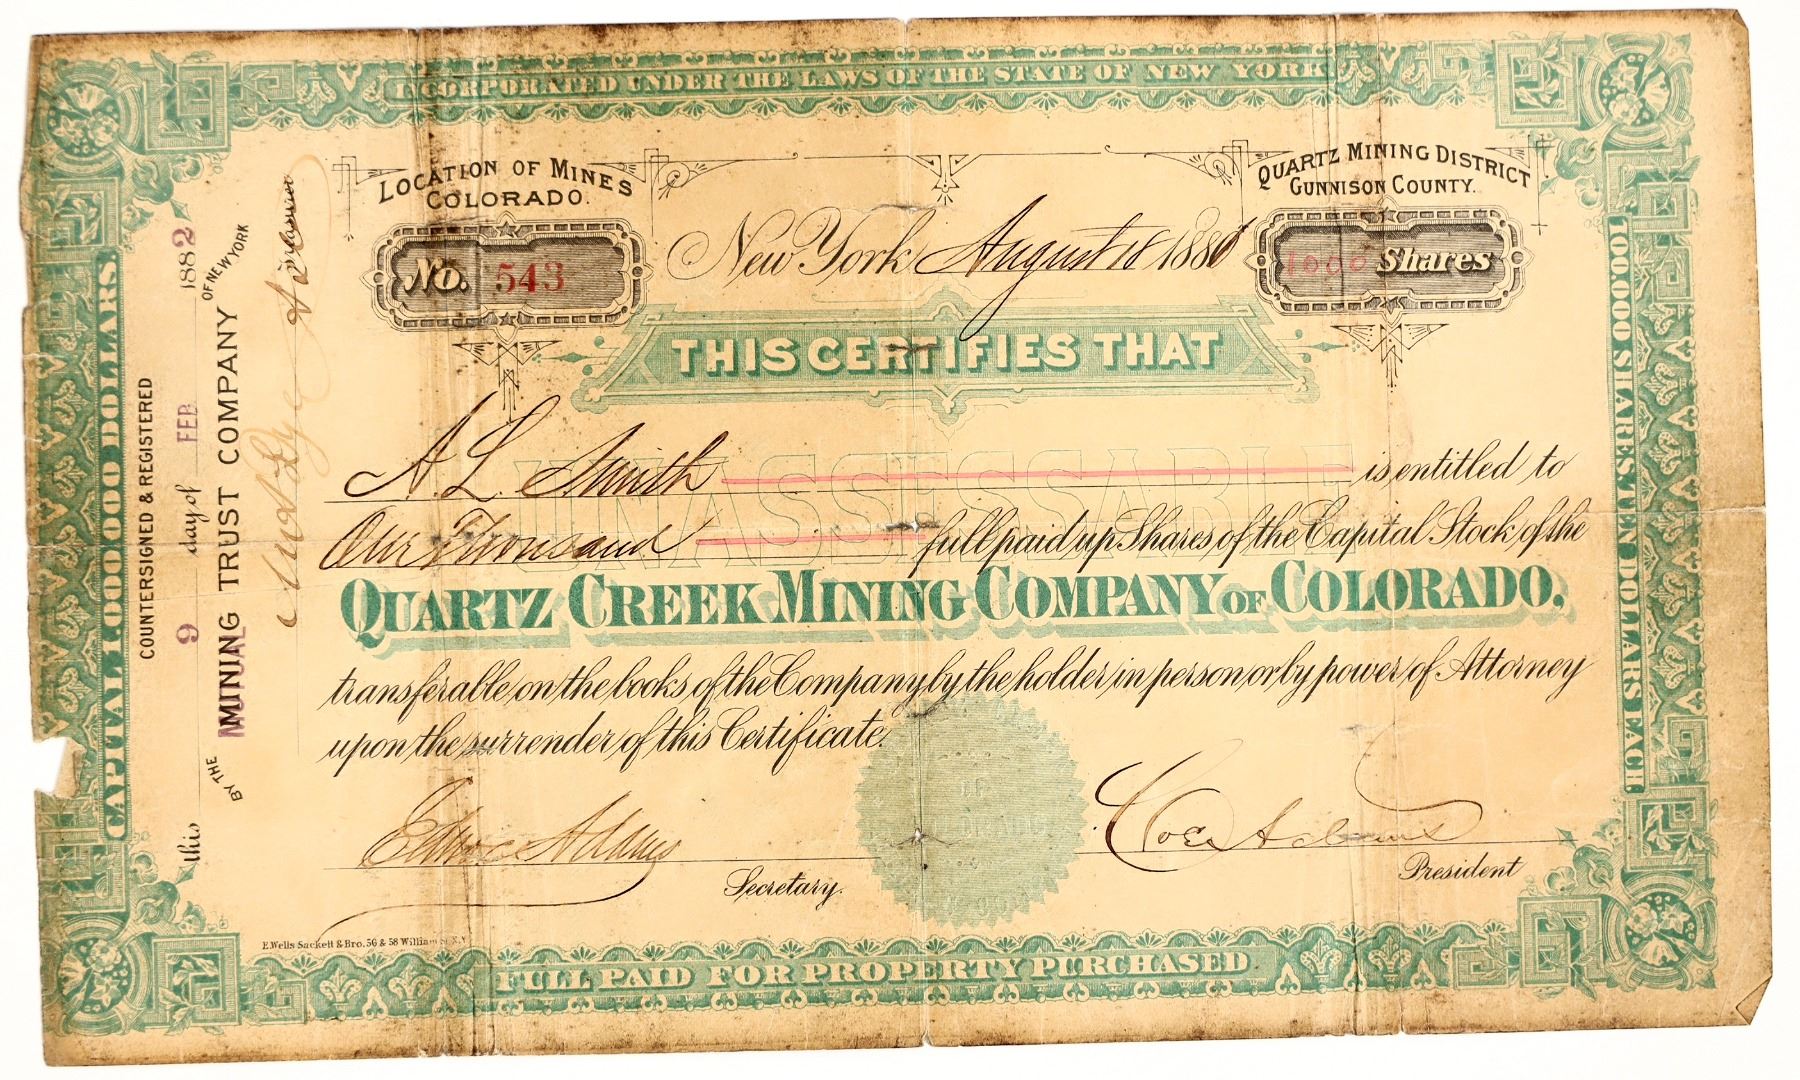 INCORPORATED UNDER THE LAWS OF THE STATE OF NEW YORK
LOCATION OF MINES
COLORADO.
QUARTZ MINING DISTRICT
GUNNISON COUNTY.
No. 543
New York August 18 1881
1000 Shares
THIS CERTIFIES THAT
UNASSESSABLE
A. L. Smith is entitled to
One Thousand full paid up Shares of the Capital Stock of the
QUARTZ CREEK MINING COMPANY OF COLORADO.
transferable on the books of the Company by the holder in person or by power of Attorney
upon the surrender of this Certificate.
Secretary.
President
E. Wells Sackett & Bro. 56 & 58 William St. N.Y.
FULL PAID FOR PROPERTY PURCHASED
CAPITAL 1,000,000 DOLLARS.
COUNTERSIGNED & REGISTERED
this 9 day of FEB 1882
BY THE MINING TRUST COMPANY OF NEW YORK
MUTUAL
100,000 SHARES TEN DOLLARS EACH